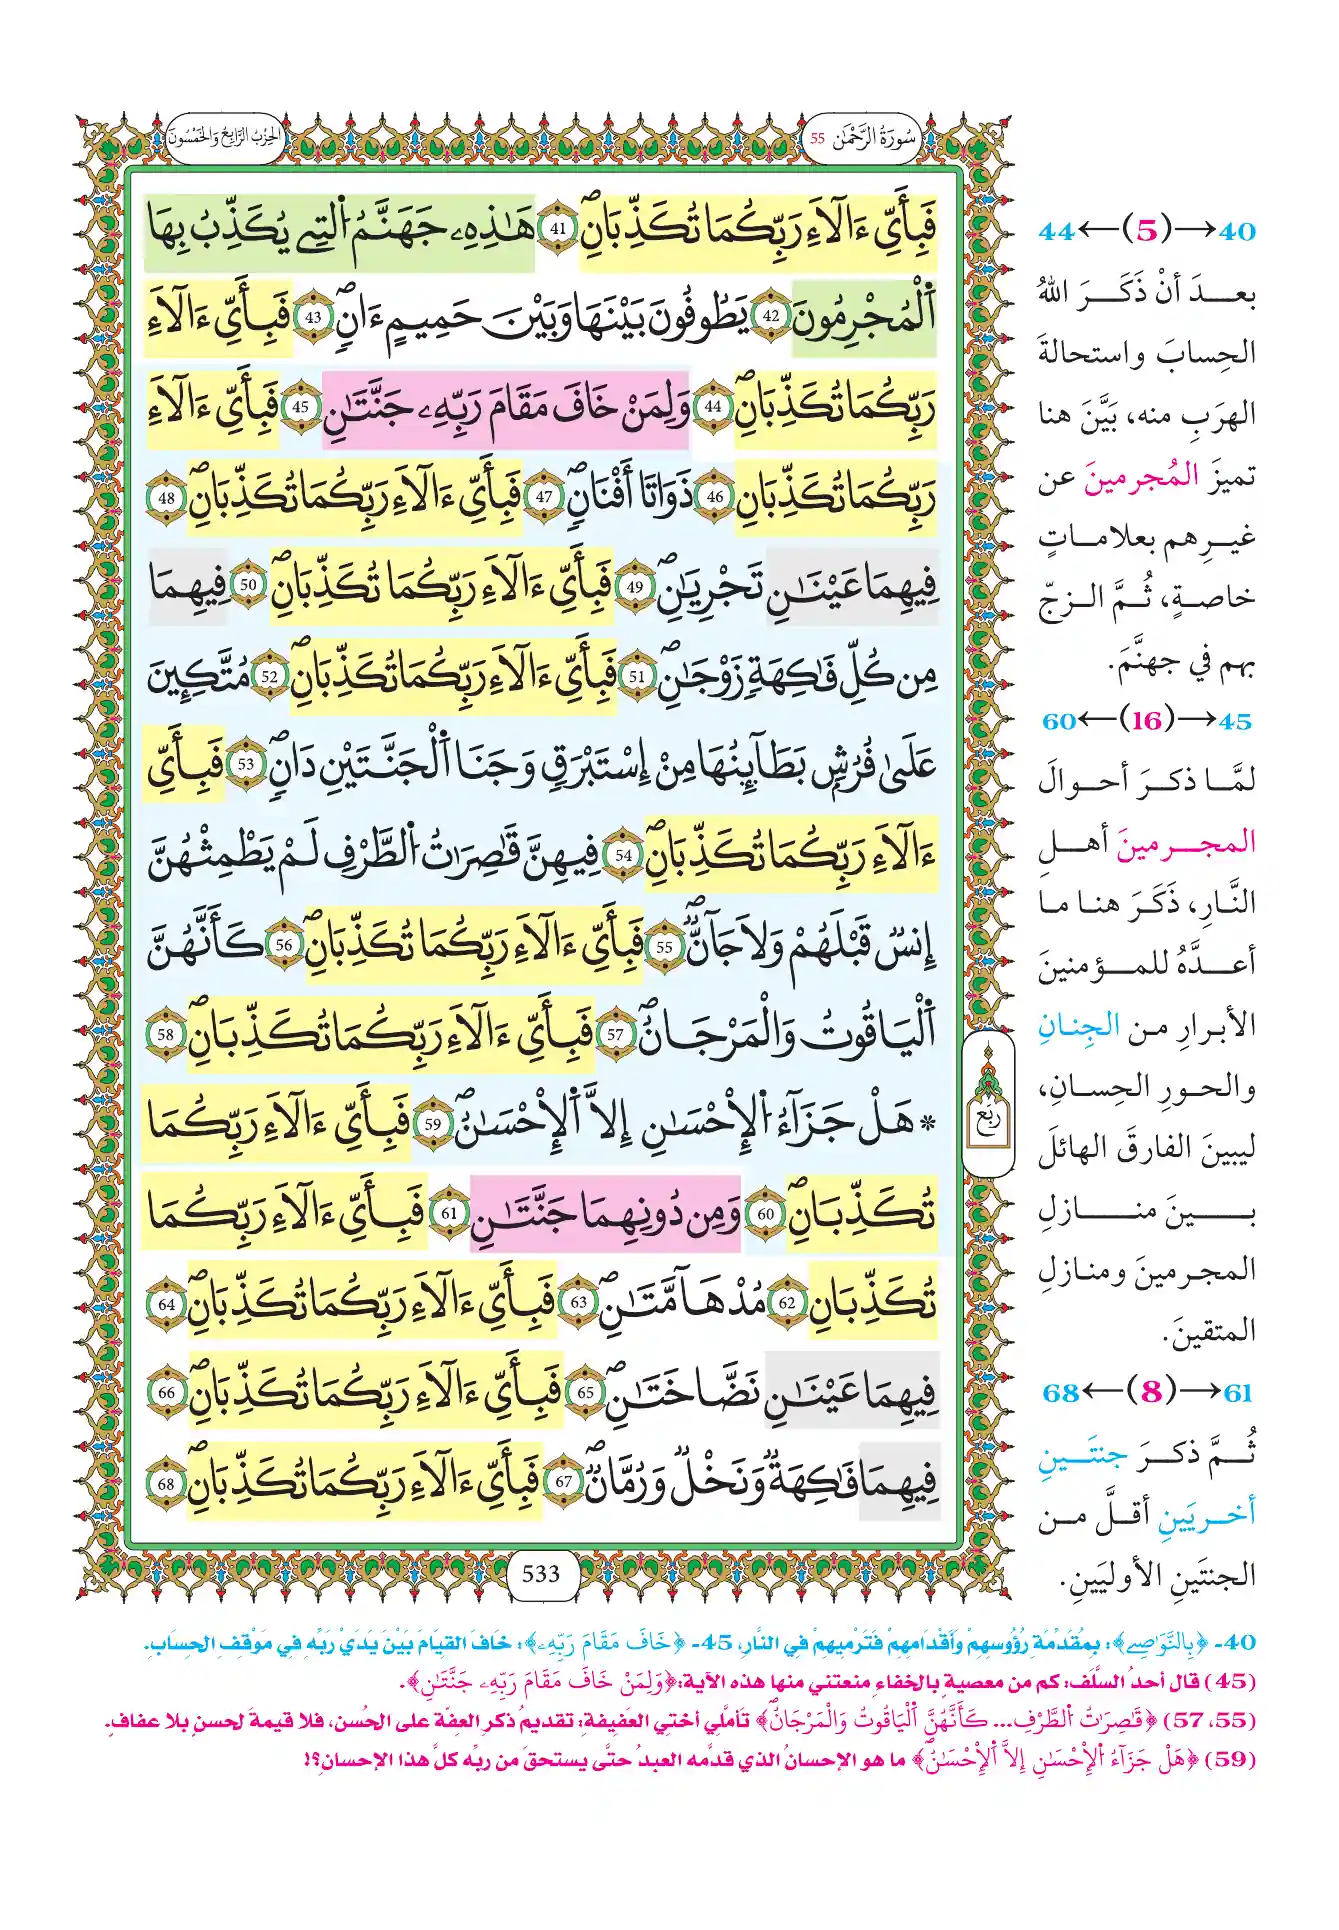 سُورَةُ الرَّحْمَٰن 55
الحِزْبُ الرَّابِعُ وَالخَمْسُونَ
فَبِأَيِّ ءَالَآءِ رَبِّكُمَا تُكَذِّبَانِ 41 هَٰذِهِۦ جَهَنَّمُ اُ۬لتِے يُكَذِّبُ بِهَا
اَ۬لْمُجْرِمُونَ 42 يَطُوفُونَ بَيْنَهَا وَبَيْنَ حَمِيمٍ ءَانٖ 43 فَبِأَيِّ ءَالَآءِ
رَبِّكُمَا تُكَذِّبَانِ 44 وَلِمَنْ خَافَ مَقَامَ رَبِّهِۦ جَنَّتَٰنِ 45 فَبِأَيِّ ءَالَآءِ
رَبِّكُمَا تُكَذِّبَانِ 46 ذَوَاتَا أَفْنَانٖ 47 فَبِأَيِّ ءَالَآءِ رَبِّكُمَا تُكَذِّبَانِ 48
فِيهِمَا عَيْنَٰنِ تَجْرِيَٰنِ 49 فَبِأَيِّ ءَالَآءِ رَبِّكُمَا تُكَذِّبَانِ 50 فِيهِمَا
مِن كُلِّ فَٰكِهَةٖ زَوْجَٰنِ 51 فَبِأَيِّ ءَالَآءِ رَبِّكُمَا تُكَذِّبَانِ 52 مُتَّكِـِٕينَ
عَلَىٰ فُرُشِۢ بَطَآئِنُهَا مِنْ إِسْتَبْرَقٖ وَجَنَا اَ۬لْجَنَّتَيْنِ دَانٖ 53 فَبِأَيِّ
ءَالَآءِ رَبِّكُمَا تُكَذِّبَانِ 54 فِيهِنَّ قَٰصِرَٰتُ اُ۬لطَّرْفِ لَمْ يَطْمِثْهُنَّ
إِنسٞ قَبْلَهُمْ وَلَا جَآنّٞ 55 فَبِأَيِّ ءَالَآءِ رَبِّكُمَا تُكَذِّبَانِ 56 كَأَنَّهُنَّ
اَ۬لْيَاقُوتُ وَالْمَرْجَانُ 57 فَبِأَيِّ ءَالَآءِ رَبِّكُمَا تُكَذِّبَانِ 58
* هَلْ جَزَآءُ اُ۬لْإِحْسَٰنِ إِلَّا اَ۬لْإِحْسَٰنُ 59 فَبِأَيِّ ءَالَآءِ رَبِّكُمَا
تُكَذِّبَانِ 60 وَمِن دُونِهِمَا جَنَّتَٰنِ 61 فَبِأَيِّ ءَالَآءِ رَبِّكُمَا
تُكَذِّبَانِ 62 مُدْهَآمَّتَٰنِ 63 فَبِأَيِّ ءَالَآءِ رَبِّكُمَا تُكَذِّبَانِ 64
فِيهِمَا عَيْنَٰنِ نَضَّاخَتَٰنِ 65 فَبِأَيِّ ءَالَآءِ رَبِّكُمَا تُكَذِّبَانِ 66
فِيهِمَا فَٰكِهَةٞ وَنَخْلٞ وَرُمَّانٞ 67 فَبِأَيِّ ءَالَآءِ رَبِّكُمَا تُكَذِّبَانِ 68
رُبُع
533
40→(5)←44
بعدَ أنْ ذَكَرَ اللهُ
الحِسابَ واستحالةَ
الهرَبِ منه، بَيَّنَ هنا
تميزَ المُجرمينَ عن
غيرِهم بعلاماتٍ
خاصةٍ، ثُمَّ الزجّ
بهم في جهنَّمَ.
45→(16)←60
لمَّا ذكرَ أحوالَ
المجرمينَ أهلِ
النَّارِ، ذَكَرَ هنا ما
أعدَّهُ للمؤمنينَ
الأبرارِ من الجِنانِ
والحورِ الحِسانِ،
ليبينَ الفارقَ الهائلَ
بينَ منازلِ
المجرمينَ ومنازلِ
المتقينَ.
61→(8)←68
ثُمَّ ذكرَ جنتَينِ
أخريَينِ أقلَّ من
الجنتَينِ الأوليَينِ.
40- ﴿بِالنَّوَٰصِے﴾: بِمُقَدِّمَةِ رُؤُوسِهِمْ وَأَقْدَامِهِمْ فَتَرْمِيهِمْ فِي النَّارِ، 45- ﴿خَافَ مَقَامَ رَبِّهِۦ﴾: خَافَ القِيَامَ بَيْنَ يَدَيْ رَبِّهِ فِي مَوْقِفِ الحِسَابِ.
(45) قال أحدُ السَّلَف: كم من معصيةٍ بالخفاءِ منعتني منها هذه الآية: ﴿وَلِمَنْ خَافَ مَقَامَ رَبِّهِۦ جَنَّتَٰنِ﴾.
(55، 57) ﴿قَٰصِرَٰتُ اُ۬لطَّرْفِ... كَأَنَّهُنَّ اَ۬لْيَاقُوتُ وَالْمَرْجَانُ﴾ تأمَّلي أختي العفيفة: تقديمُ ذكرِ العِفَّة على الحُسن، فلا قيمةَ لحسنٍ بلا عفاف.
(59) ﴿هَلْ جَزَآءُ اُ۬لْإِحْسَٰنِ إِلَّا اَ۬لْإِحْسَٰنُ﴾ ما هو الإحسانُ الذي قدَّمه العبدُ حتَّى يستحقَ من ربِّه كلَّ هذا الإحسانِ؟!